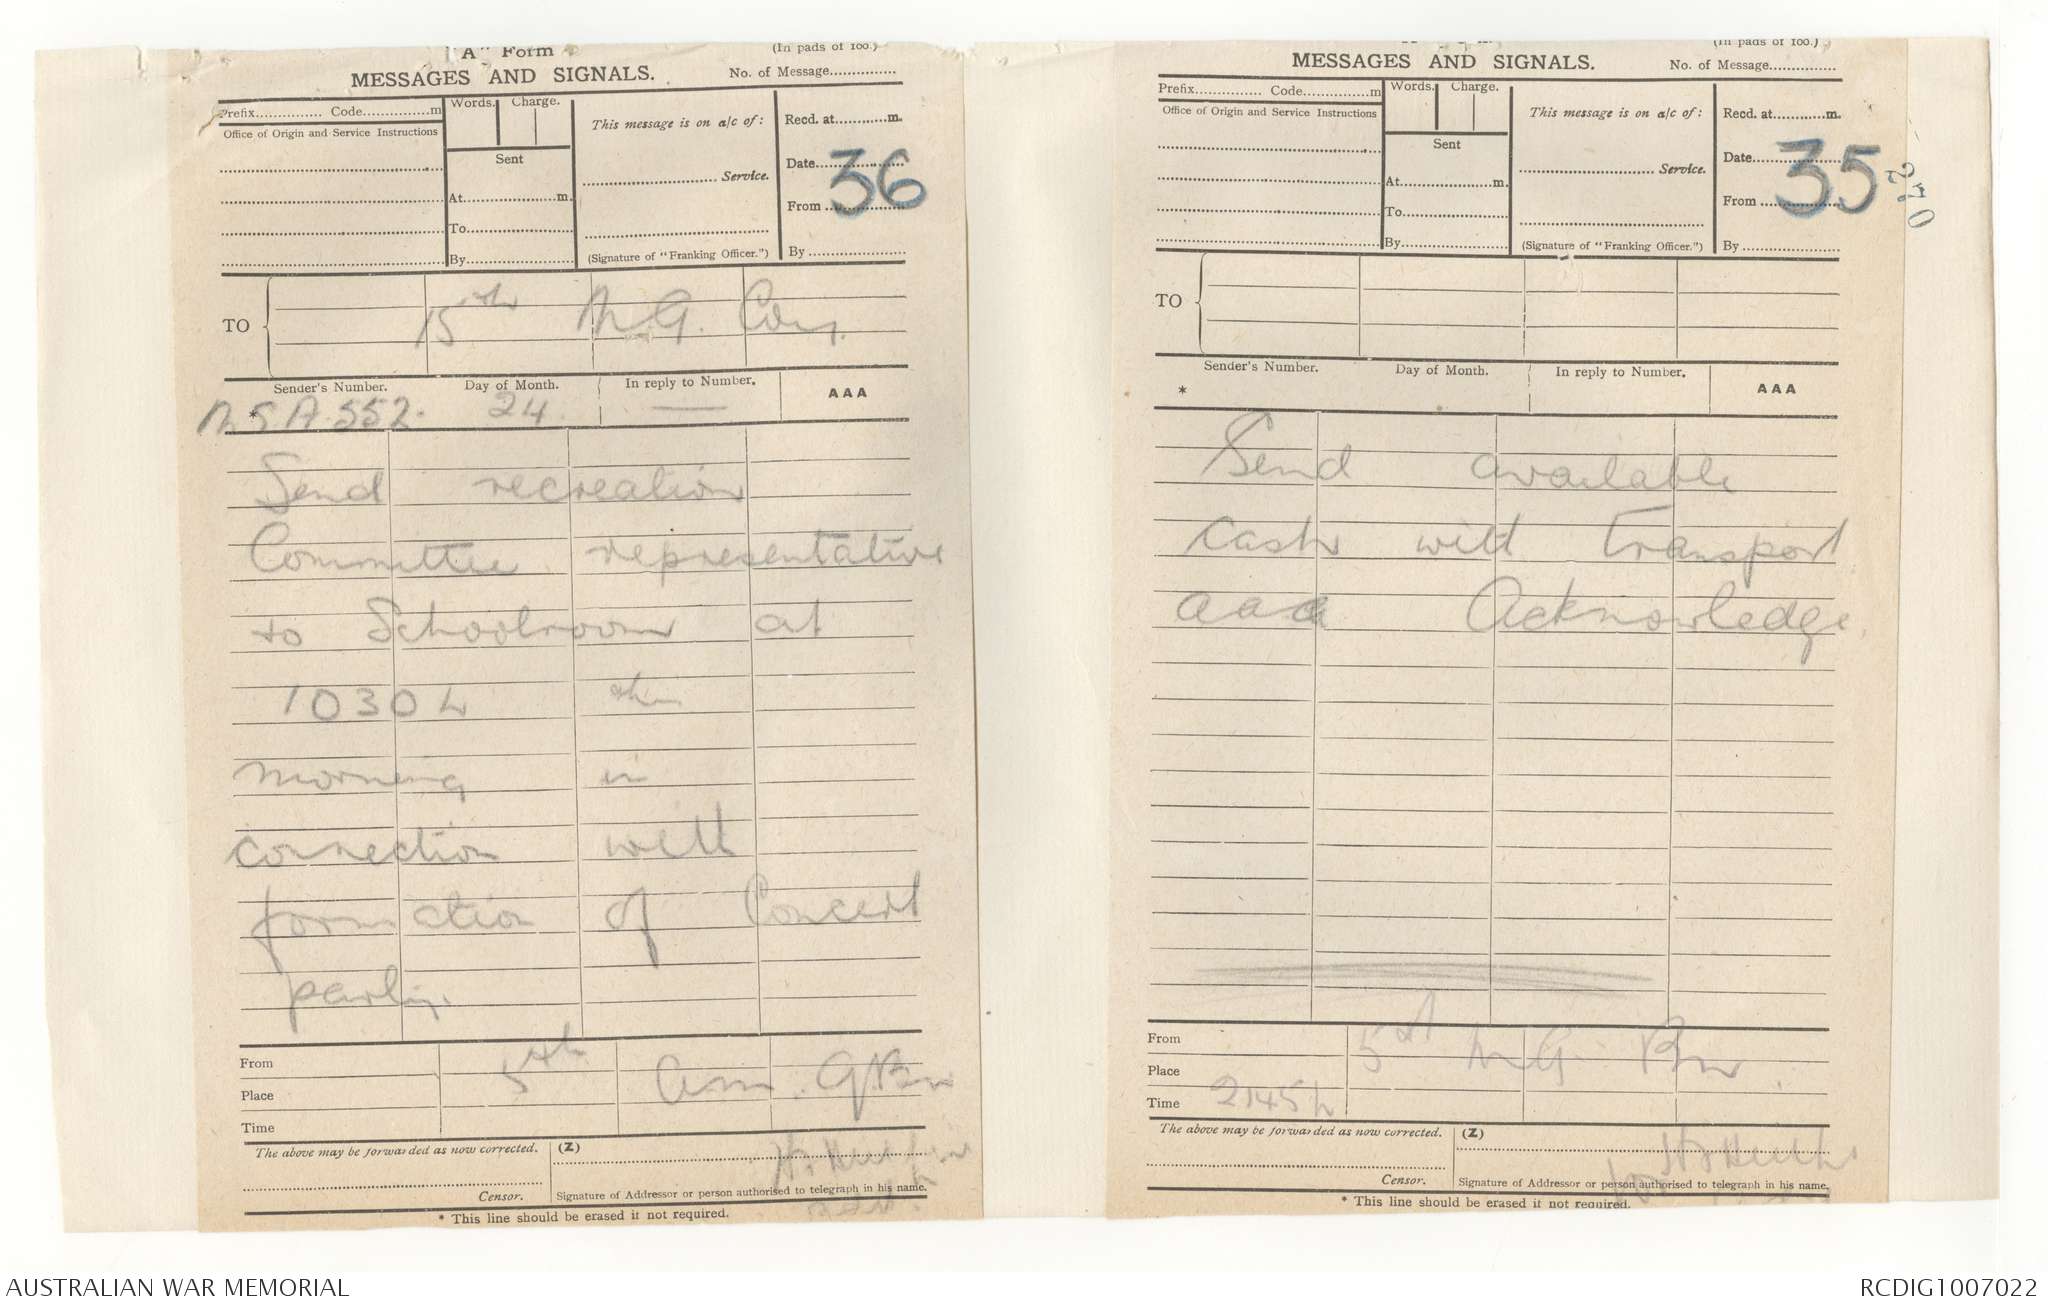 "A" Form
(In pads of 100.)
MESSAGES AND SIGNALS.
No. of Message...............
Prefix............... Code...............m
Words. Charge.
Office of Origin and Service Instructions
Sent
At...............m.
To...............
By...............
This message is on a/c of:
............... Service.
(Signature of "Franking Officer.")
Recd. at...............m.
Date...............
36
From ...............
By ...............
TO
15th M.G. Coy.
Sender's Number. Day of Month. In reply to Number. AAA
* A.552. 24. —
Send recreation
Committee representative
to Schoolroom at
1030 h this
morning in
connection with
formation of Concert
party.
From 5th
Place
Time
The above may be forwarded as now corrected. (Z)
Censor. Signature of Addressor or person authorised to telegraph in his name.
* This line should be erased if not required.
(In pads of 100.)
MESSAGES AND SIGNALS.
No. of Message...............
Prefix............... Code...............m
Words. Charge.
Office of Origin and Service Instructions
Sent
At...............m.
To...............
By...............
This message is on a/c of:
............... Service.
(Signature of "Franking Officer.")
Recd. at...............m.
Date...............
35
270
From ...............
By ...............
TO
Sender's Number. Day of Month. In reply to Number. AAA
*
Send available
cash with Transport
aaa Acknowledge.
From 5th M.G. Bn.
Place
Time 2145 h
The above may be forwarded as now corrected. (Z)
Censor. Signature of Addressor or person authorised to telegraph in his name.
* This line should be erased if not required.
AUSTRALIAN WAR MEMORIAL
RCDIG1007022